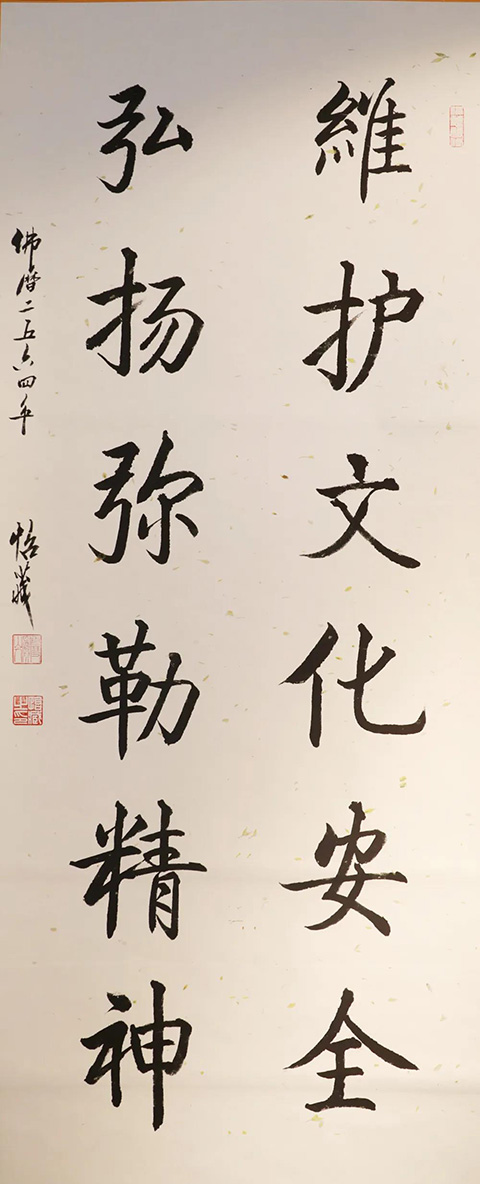 維护文化安全
弘扬弥勒精神
佛曆二五六四年
怡藏